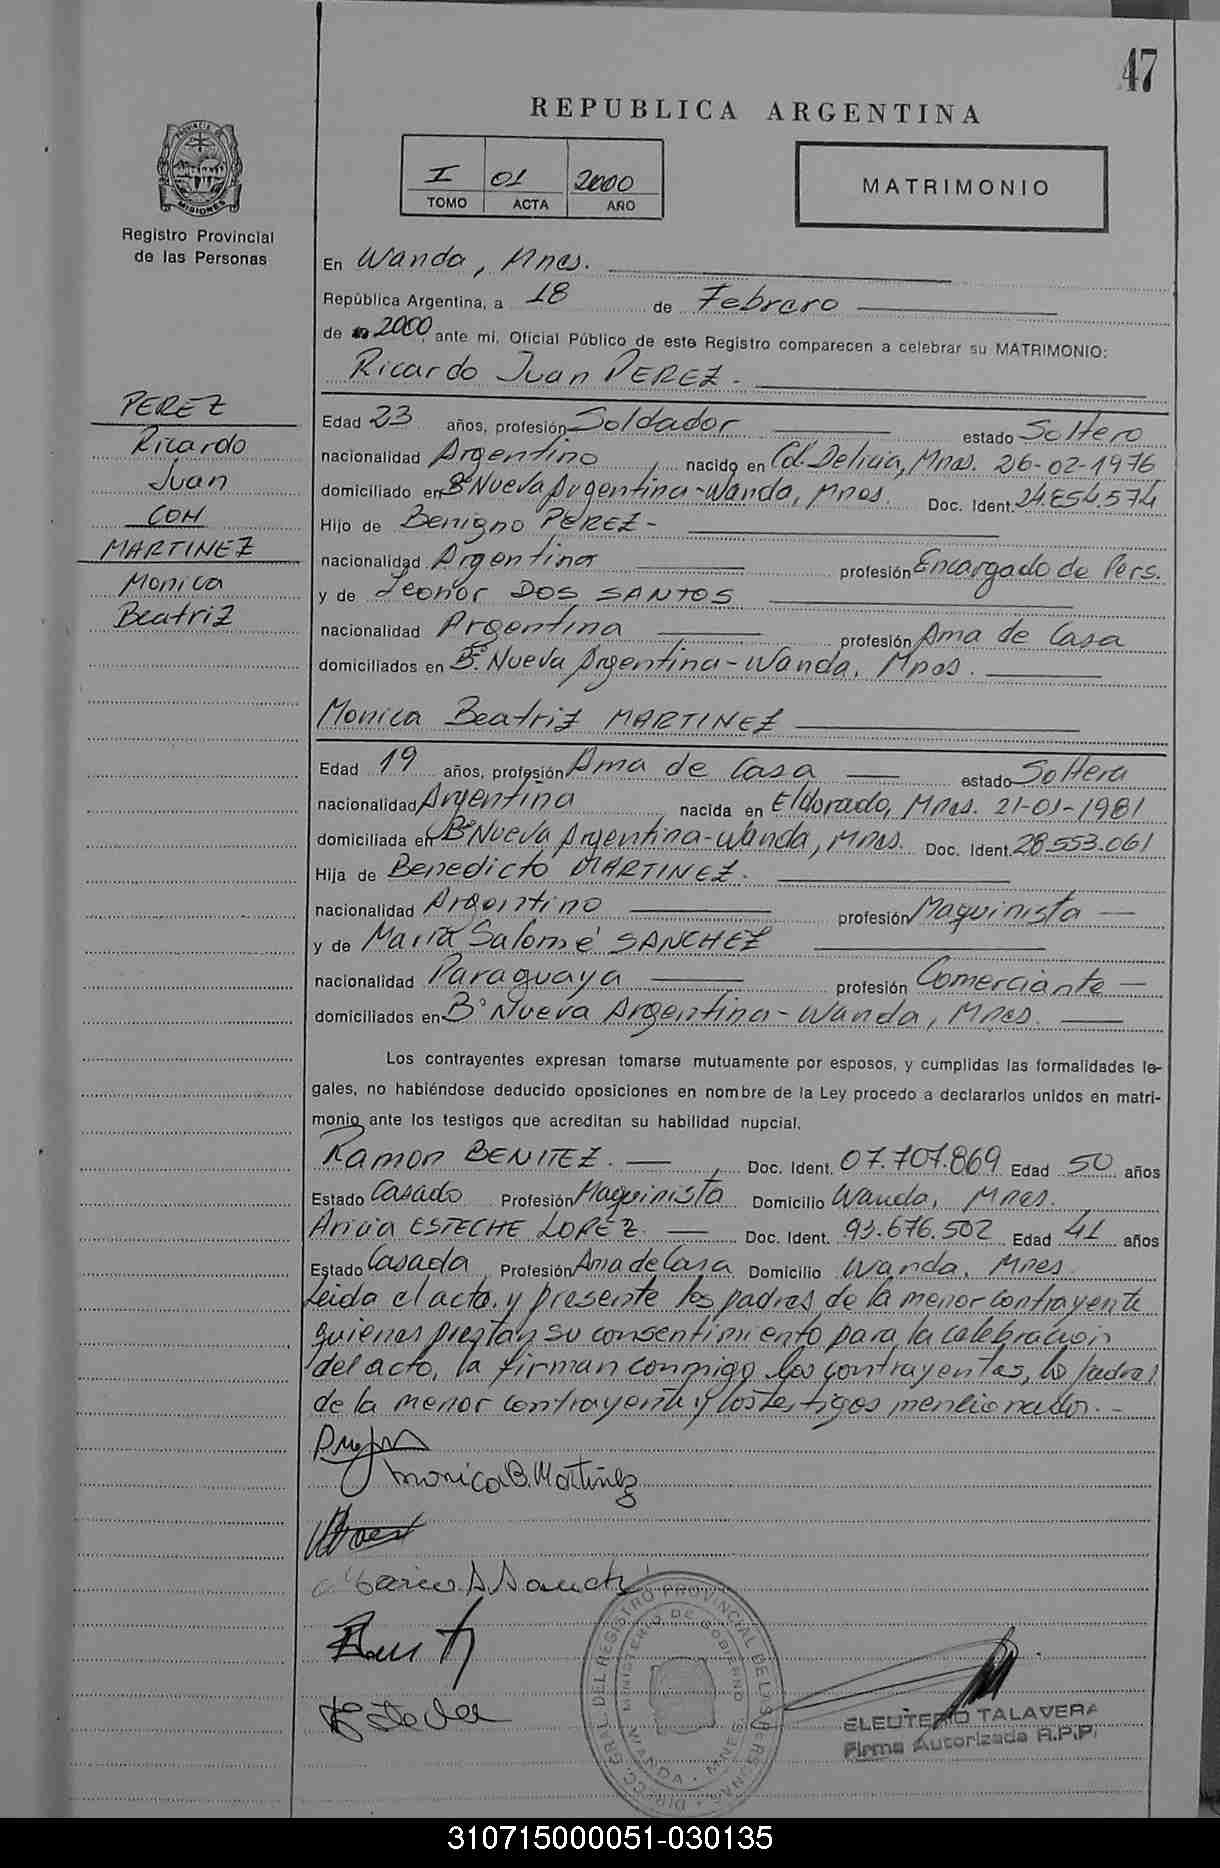 47
REPUBLICA ARGENTINA
PROVINCIA DE
MISIONES
Registro Provincial
de las Personas
I 01 2000
TOMO ACTA AÑO
MATRIMONIO
En Wanda, Mnes.
República Argentina, a 18 de Febrero
de 2000, ante mi, Oficial Público de este Registro comparecen a celebrar su MATRIMONIO:
Ricardo Juan PEREZ.-
PEREZ
Ricardo
Juan
CON
MARTINEZ
Monica
Beatriz
Edad 23 años, profesión Soldador estado Soltero
nacionalidad Argentino, nacido en Col. Delicia, Mnes. 26-02-1976
domiciliado en Bº Nueva Argentina-Wanda, Mnes. Doc. Ident. 24.854.574
Hijo de Benigno PEREZ-
nacionalidad Argentina profesión Encargado de Pers.
y de Leonor DOS SANTOS
nacionalidad Argentina profesión Ama de Casa
domiciliados en Bº Nueva Argentina-Wanda, Mnes.
Monica Beatriz MARTINEZ
Edad 19 años, profesión Ama de Casa estado Soltera
nacionalidad Argentina nacida en Eldorado, Mnes. 21-01-1981
domiciliada en Bº Nueva Argentina-Wanda, Mnes. Doc. Ident. 28.553.061
Hija de Benedicto MARTINEZ.
nacionalidad Argentino profesión Maquinista
y de María Salomé SANCHEZ
nacionalidad Paraguaya profesión Comerciante
domiciliados en Bº Nueva Argentina-Wanda, Mnes.
Los contrayentes expresan tomarse mutuamente por esposos, y cumplidas las formalidades le-
gales, no habiéndose deducido oposiciones en nombre de la Ley procedo a declararlos unidos en matri-
monio ante los testigos que acreditan su habilidad nupcial.
Ramon BENITEZ. Doc. Ident. 07.707.869 Edad 50 años
Estado Casado Profesión Maquinista Domicilio Wanda, Mnes.
ESTECHE LOPEZ Doc. Ident. 93.676.502 Edad 41 años
Estado Casada, Profesión Ama de Casa Domicilio Wanda, Mnes
Leida el acta, y presente los padres de la menor contrayente
quienes prestan su consentimiento para la celebracion
del acto, la firman conmigo los contrayentes, los padres
de la menor contrayente y los testigos mencionados.-
Monica B. Martinez
DIRECC. GRAL. DEL REGISTRO PROVINCIAL DE LAS PERSONAS
MINISTERIO DE GOBIERNO
WANDA - MNES
ELEUTERIO TALAVERA
Firma Autorizada R.P.P.
310715000051-030135